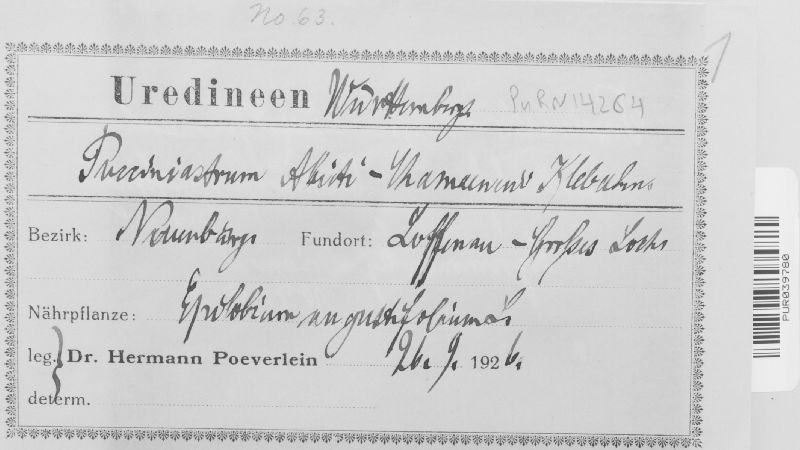 No. 63.
1
Uredineen Württembergs
PURN14264
Pucciniastrum Abieti - Chamaenerii Klebahn.
Bezirk: Neuenbürg. Fundort: Loffenau - Großes Loch.
Nährpflanze: Epilobium angustifolium L.
leg. } Dr. Hermann Poeverlein 26. 9. 1926.
determ.
PUR039780